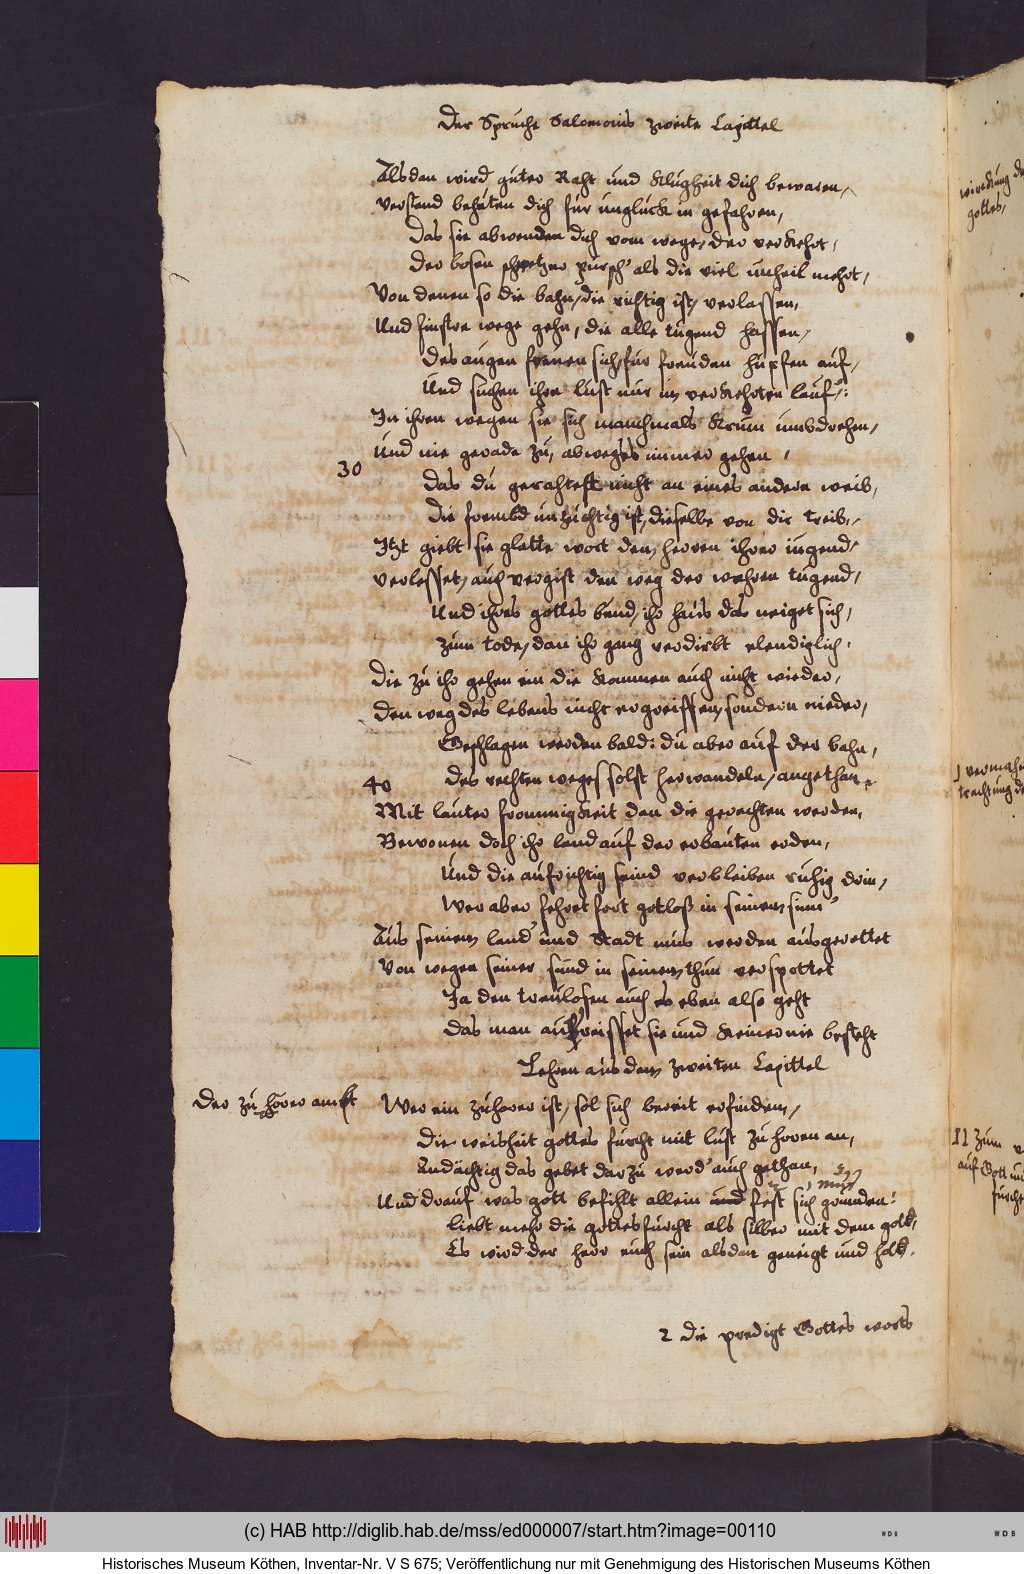 Der Spruche Salomonis zweite Capittel
Alsdan wird guter Raht und Klugheit dich bewaren,
verstand behuten dich für unglück in gefahren,
Das sie abwenden dich vom wege, der verkehrt,
der bosen schwetzer pursch' als die viel unheil mehrt,
Von denen so die bahn, die richtig ist, verlassen,
Und finstre wege gehn, die alle tugend hassen,
des augen freuen sich, für freuden hupfen auf,
Und suchen ihre lust nur im verkehrten lauf:
In ihren wegen sie sich manchmals krum umbdrehen,
Und nie gerade zu, abweges immer gehen,
30
Das du gerahtest nicht an eines andern weib,
Die frembd unzüchtig ist, dieselbe von dir treib,
Itzt giebt sie glatte wort dem herren ihrer iugend,
verlesset, auch vergist den weg der wahren tugend,
Und ihres gottes bund, ihr haus das neiget sich,
zum tode, dan ihr gang verdirbt elendiglich.
Die zu ihr gehen ein die kommen auch nicht wieder,
den weg des lebens nicht ergreiffen, sondern nieder,
Geschlagen werden bald: du aber auf der bahn,
des rechten weges solst herwandeln, angethan
40
Mit lauter frommigkeit dan die gerechten werden,
Bewonen doch ihr land auf der erbauten erden,
Und die aufrichtig seind verbleiben ruhig drin,
Wer aber fehret fort gotloß in seinem sinn'
Aus seinem land' und Stadt mus werden ausgerottet
Von wegen seiner sund in seinem thun verspottet
Ja den treulosen auch es eben also geht
das man ausreisset sie und keiner nie besteht
Lehren aus dem zweiten Capittel
Der zuhörer ambt
Wer ein zuhorer ist, sol sich bereit erfinden,
die weisheit gottes furcht mit lust zu horen an,
Andächtig das gebet darzu werd' auch gethan,
Und drauf was gott befihlt allein und fest sich grunden:
liebt mehr die gottesfurcht als silber mit dem gold,
Es wird der herr euch sein alsdan geneigt und hold.
2 die predigt Gottes worts
wirckung
gottes,
1 vermahn
trachtung
11 zum
auf Gott
furcht
(c) HAB http://diglib.hab.de/mss/ed000007/start.htm?image=00110
Historisches Museum Köthen, Inventar-Nr. V S 675; Veröffentlichung nur mit Genehmigung des Historischen Museums Köthen